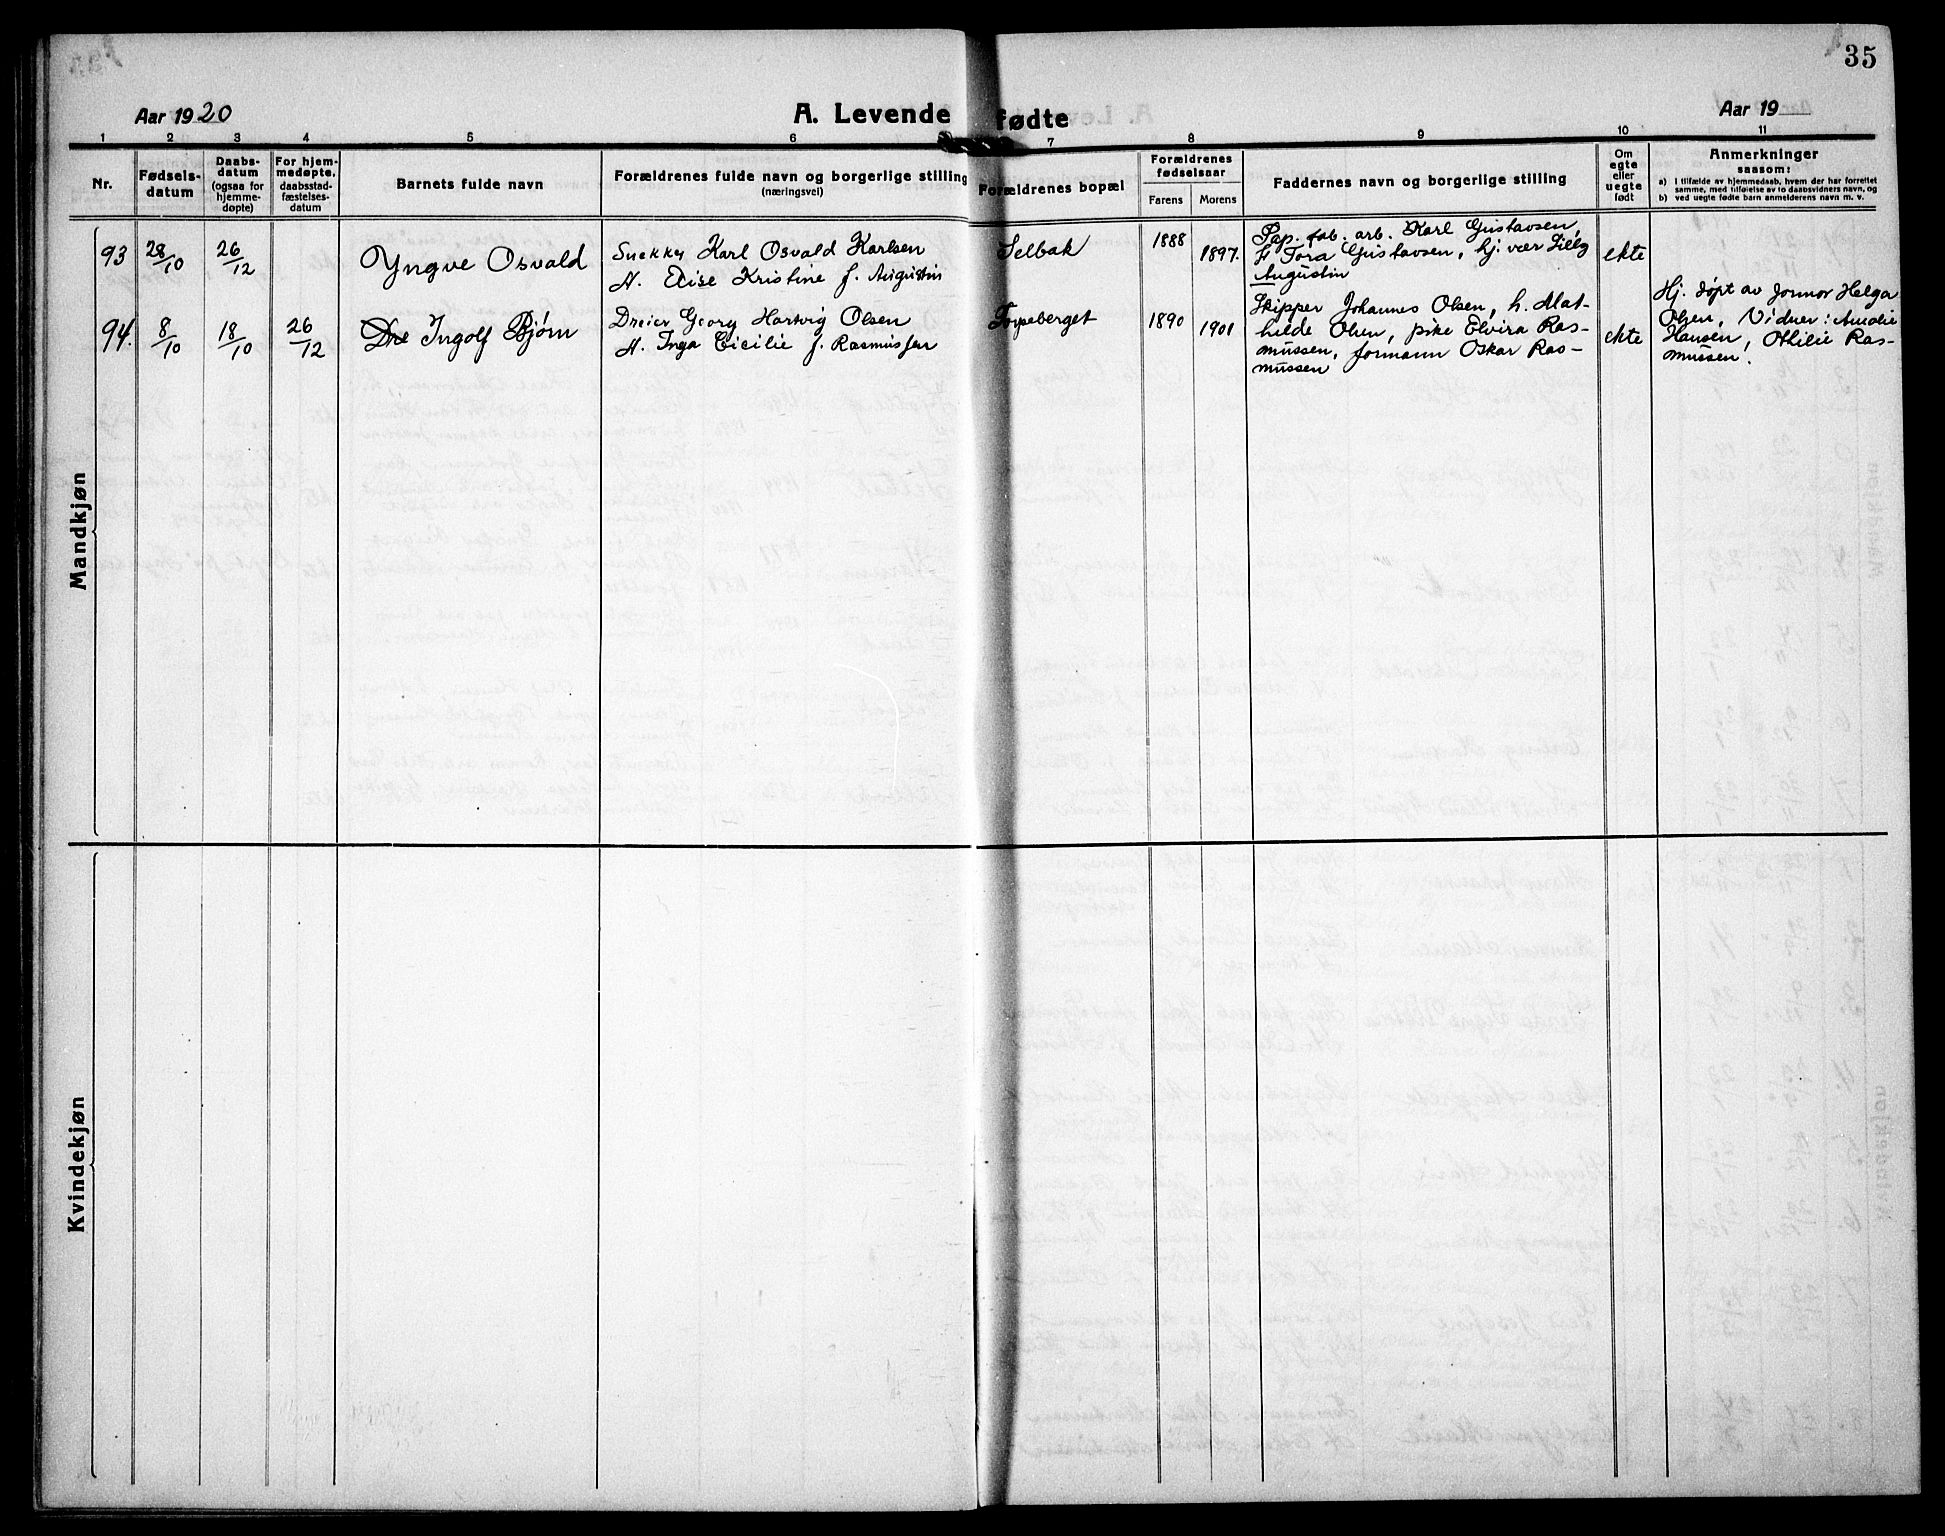 35
Aar 1920
A. Levende fødte
Aar 19
1 2 3 4 5 6 7 8 9 10 11
Nr.
Fødsels-
datum
Daabs-
datum
(ogsaa for
hjemme-
døpte)
For hjem-
medøpte,
daabsstad-
fæstelses-
datum
Barnets fulde navn
Forældrenes fulde navn og borgerlige stilling
(næringsvei)
Forældrenes bopæl
Forældrenes
fødselsaar
Farens Morens
Faddernes navn og borgerlige stilling
Om
egte
eller
uegte
født
Anmerkninger
saasom:
a) I tilfælde av hjemmedaab, hvem der har forrettet
samme, med tilføielse av to daabsvidners navn, og
b) ved uegte fødte barn anmelderens navn m. v.
Mandkjøn
93
28/10
26/12
Yngve Osvald
Snekker Karl Osvald Karlsen
H. Elise Kristine f. Augustin
Selbak
1888
1897.
Pap. fab. arb. Karl Gustavsen,
F. Tora Gustavsen, hj. vær Lilly
Augustin
ekte
94.
8/10
18/10
26/12
Ingolf Bjørn
Dreier Georg Hartvig Olsen
H. Inga Cicilie f. Rasmussen
Torpeberget
1890
1901
Skipper Johannes Olsen, h. Mat-
hilde Olsen, pike Elvira Ras-
mussen, formann Oskar Ras-
mussen
ekte
Hj. døpt av formor Helga
Olsen, Vidner: Amalie
Hansen, Othilie Ras-
mussen.
Kvindekjøn